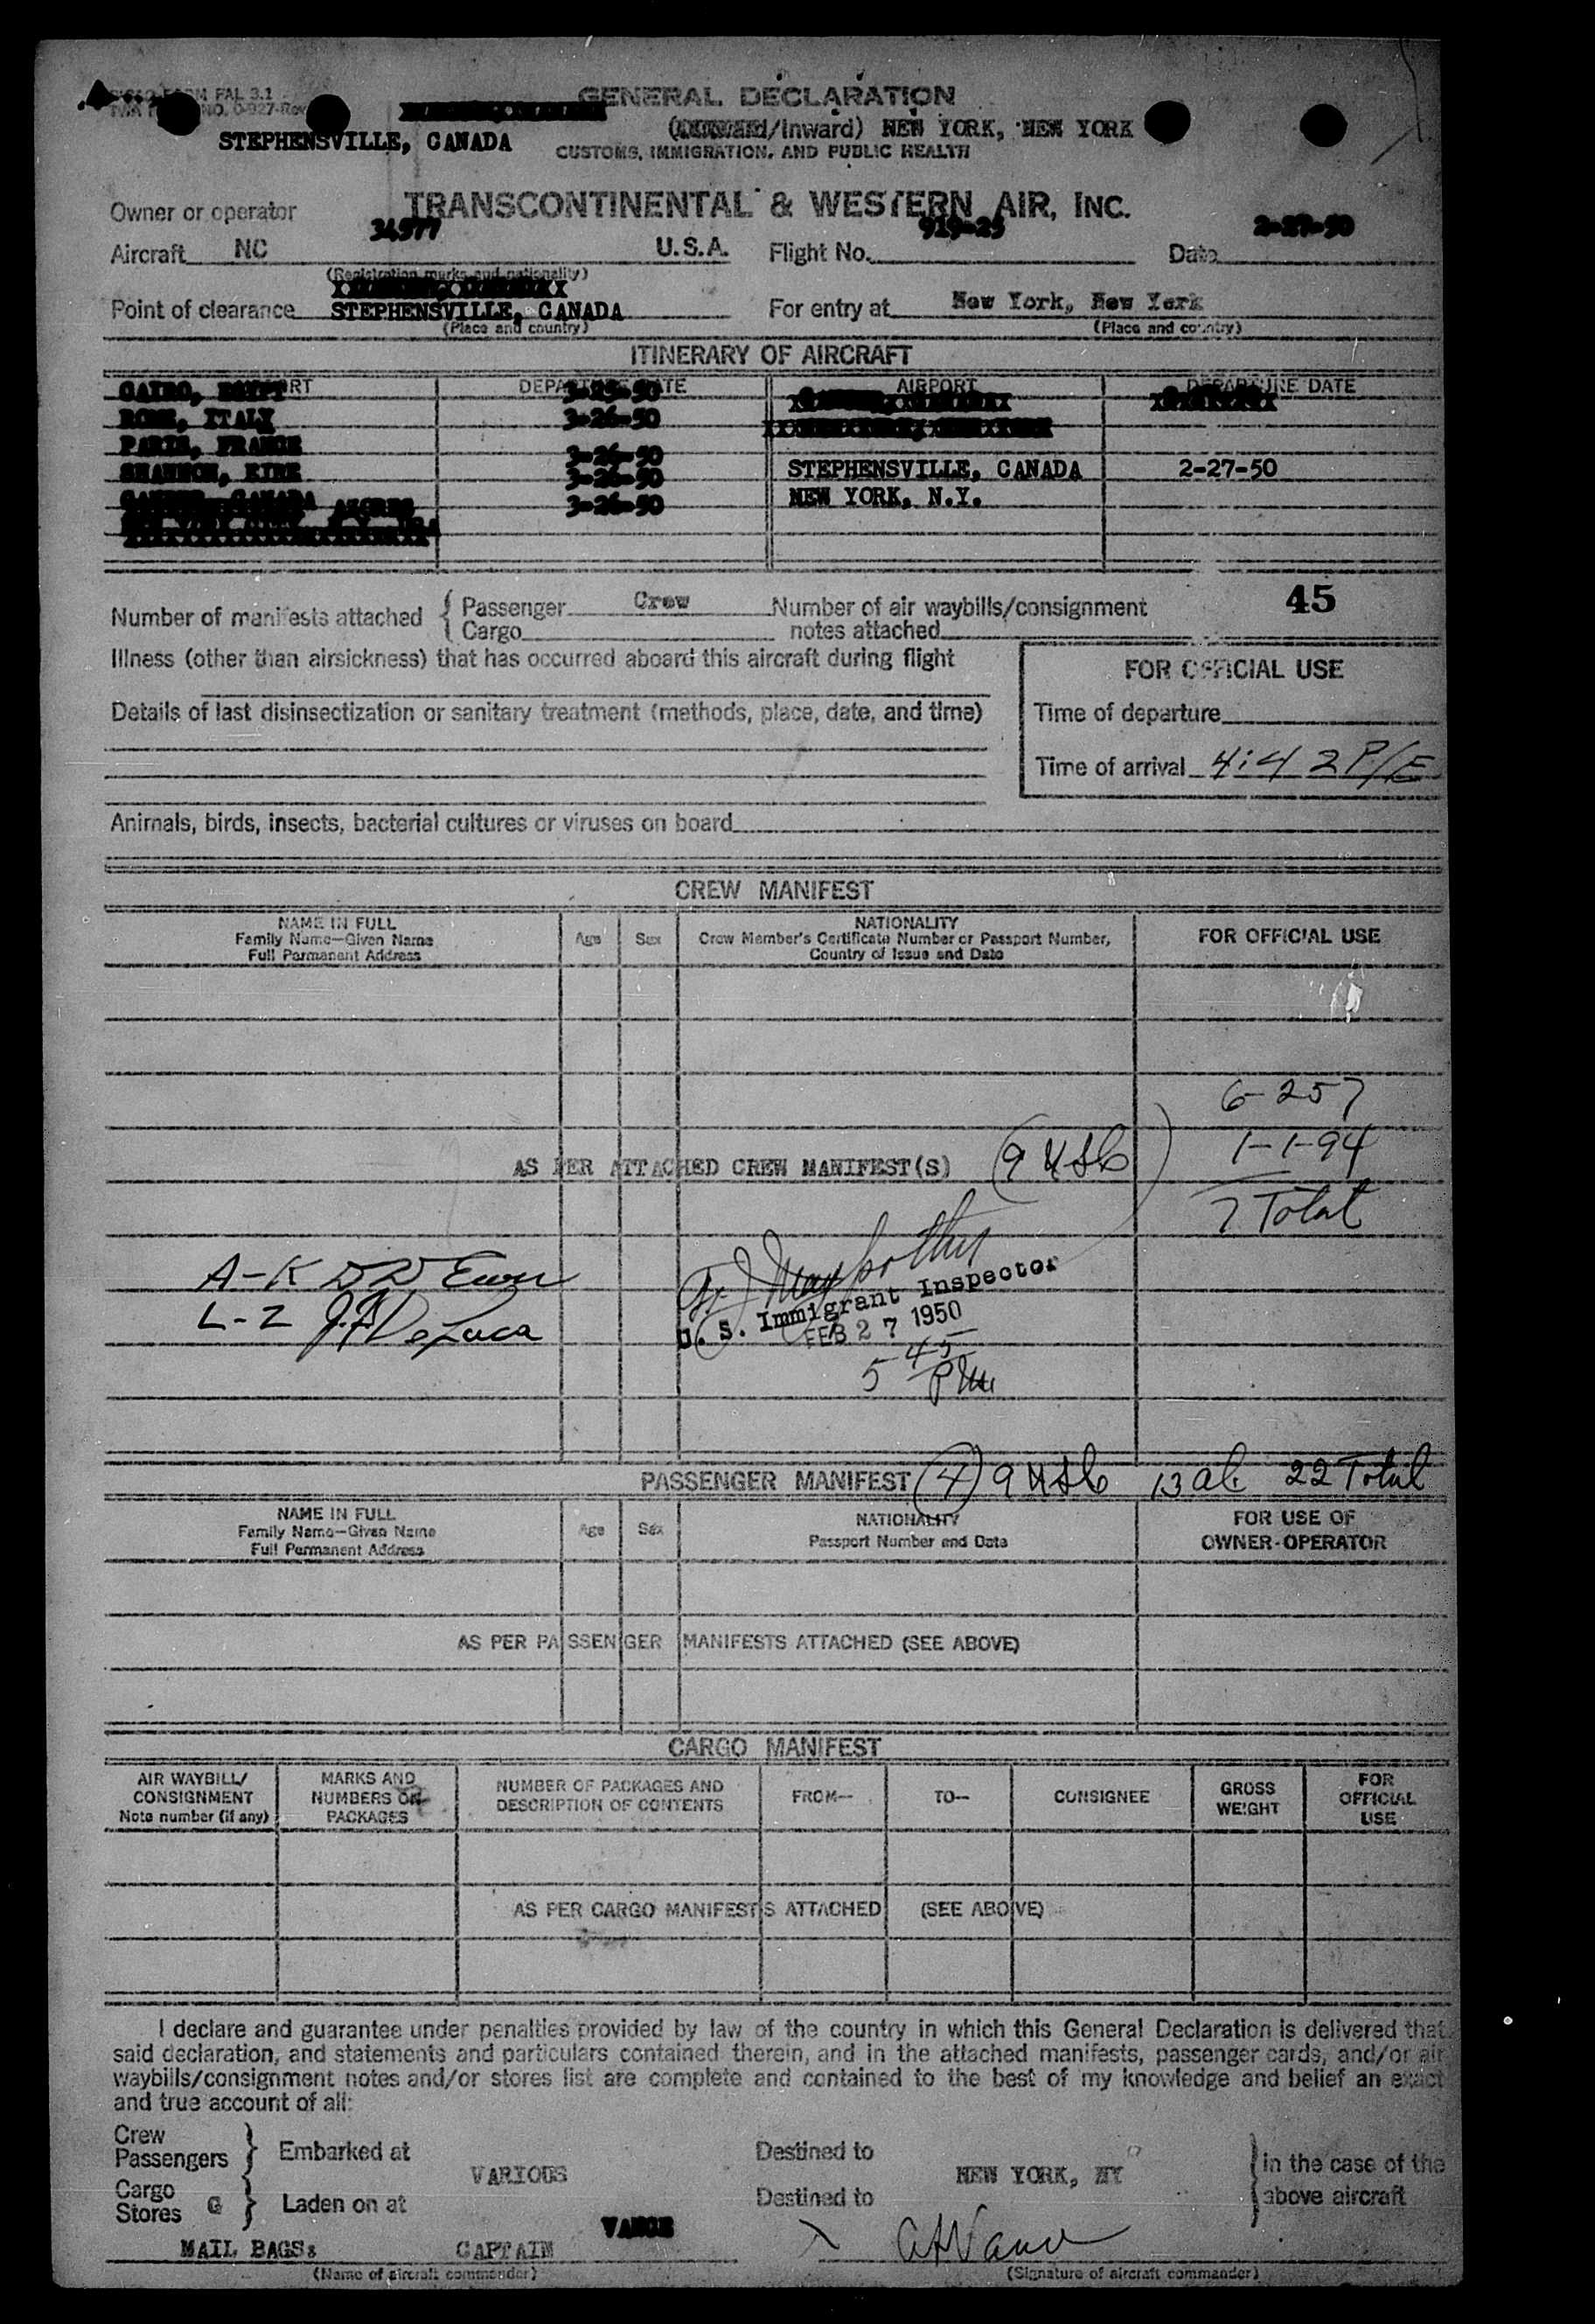 FORM PAL 3.1
NO. 0-927-Rev
GENERAL DECLARATION
(/Inward) NEW YORK, NEW YORK
STEPHENSVILLE, CANADA
CUSTOMS, IMMIGRATION, AND PUBLIC HEALTH
Owner or operator TRANSCONTINENTAL & WESTERN AIR, INC.
Aircraft NC 34577 U.S.A. Flight No. 919-25 Date 2-27-50
(Registration marks and nationality)
Point of clearance STEPHENSVILLE, CANADA For entry at New York, New York
(Place and country) (Place and country)
ITINERARY OF AIRCRAFT
AIRPORT DEPARTURE DATE AIRPORT DEPARTURE DATE
CAIRO, EGYPT 3-25-50
ROME, ITALY 3-26-50
PARIS, FRANCE 3-26-50
SHANNON, EIRE 3-26-50 STEPHENSVILLE, CANADA 2-27-50
GANDER, CANADA AZORES 3-26-50 NEW YORK, N.Y.
45
Number of manifests attached { Passenger Crew Number of air waybills/consignment
Cargo notes attached
Illness (other than airsickness) that has occurred aboard this aircraft during flight
FOR OFFICIAL USE
Details of last disinsectization or sanitary treatment (methods, place, date, and time)
Time of departure
Time of arrival 4:42 P/E
Animals, birds, insects, bacterial cultures or viruses on board
CREW MANIFEST
NAME IN FULL
Family Name—Given Name
Full Permanent Address
Age Sex
NATIONALITY
Crew Member's Certificate Number or Passport Number,
Country of Issue and Date
FOR OFFICIAL USE
6-257
1-1-94
AS PER ATTACHED CREW MANIFEST(S) (9 USC)
7 Total
A-K
L-Z J.A. DeLuca
U. S. Immigrant Inspector
FEB 27 1950
5 45 PM
PASSENGER MANIFEST (4) 9 USC 13 al. 22 Total
NAME IN FULL
Family Name—Given Name
Full Permanent Address
Age Sex
NATIONALITY
Passport Number and Date
FOR USE OF
OWNER-OPERATOR
AS PER PASSENGER MANIFESTS ATTACHED (SEE ABOVE)
CARGO MANIFEST
AIR WAYBILL/
CONSIGNMENT
Note number (if any)
MARKS AND
NUMBERS ON
PACKAGES
NUMBER OF PACKAGES AND
DESCRIPTION OF CONTENTS
FROM—
TO—
CONSIGNEE
GROSS
WEIGHT
FOR
OFFICIAL
USE
AS PER CARGO MANIFESTS ATTACHED (SEE ABOVE)
I declare and guarantee under penalties provided by law of the country in which this General Declaration is delivered that
said declaration, and statements and particulars contained therein, and in the attached manifests, passenger cards, and/or air
waybills/consignment notes and/or stores list are complete and contained to the best of my knowledge and belief an exact
and true account of all:
Crew
Passengers } Embarked at VARIOUS Destined to NEW YORK, NY } in the case of the
Cargo
Stores G } Laden on at Destined to above aircraft
MAIL BAGS: CAPTAIN VANCE
(Name of aircraft commander) (Signature of aircraft commander)